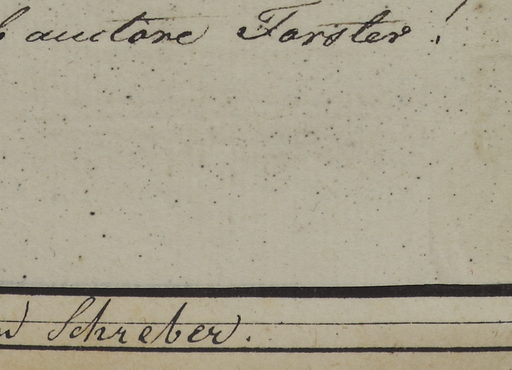 auctore Forster!
Schreber.